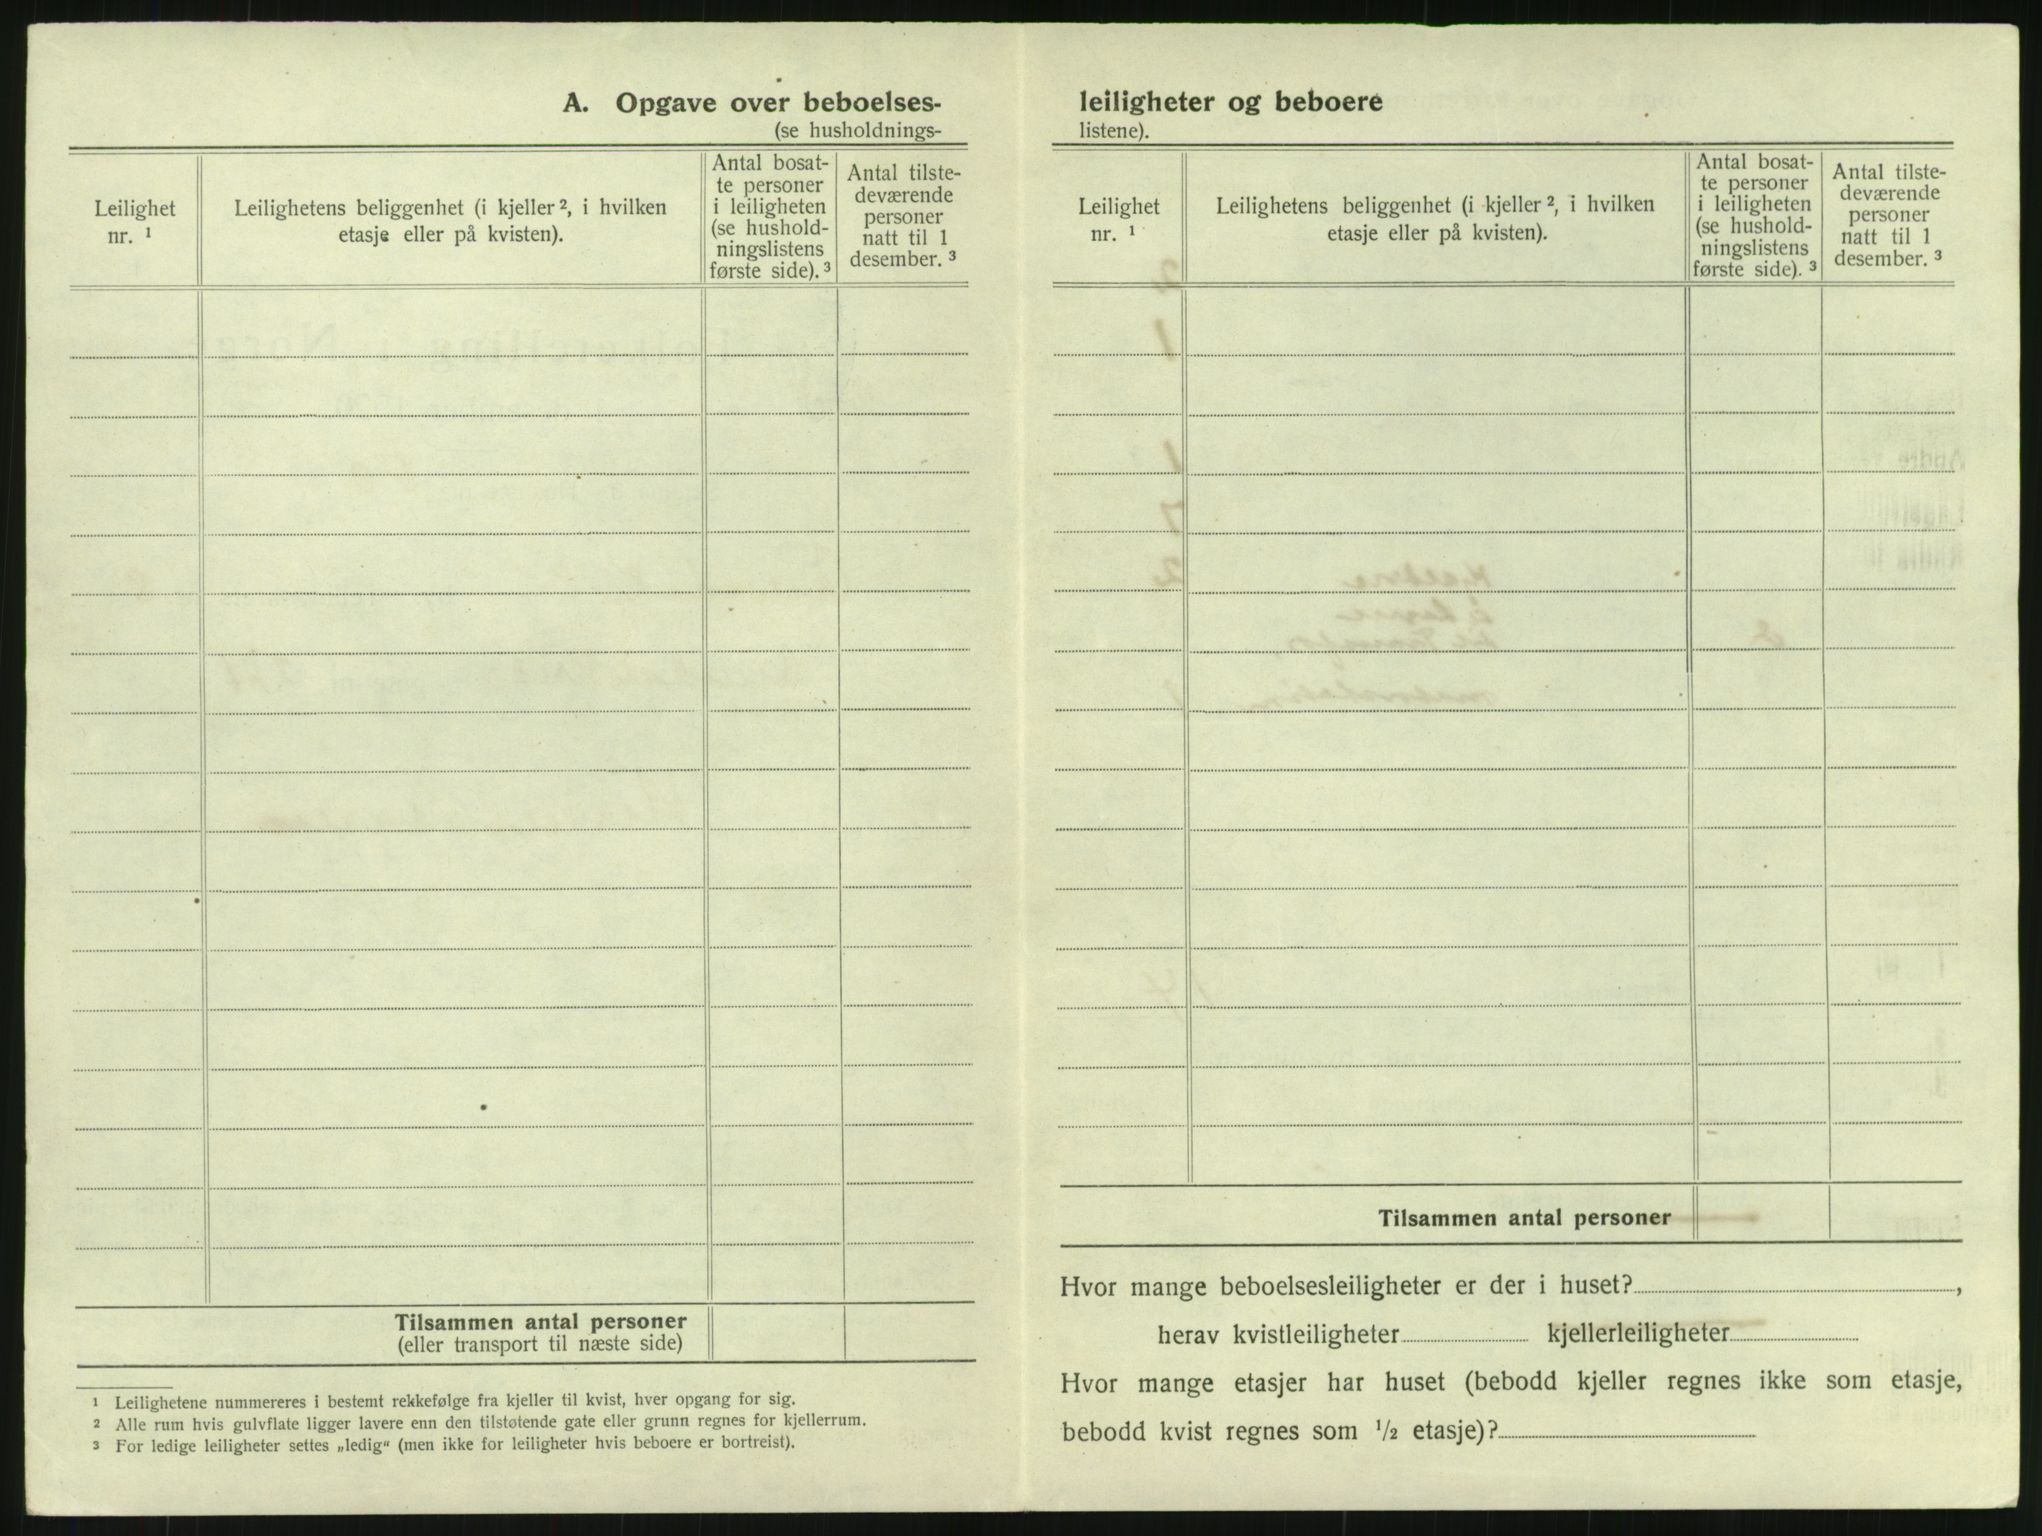 A. Opgave over beboelses-
(se husholdnings-
Leilighet
nr. ¹
Leilighetens beliggenhet (i kjeller ², i hvilken
etasje eller på kvisten).
Antal bosat-
te personer
i leiligheten
(se hushold-
ningslistens
første side). ³
Antal tilste-
deværende
personer
natt til 1
desember. ³
Tilsammen antal personer
(eller transport til næste side)
¹ Leilighetene nummereres i bestemt rekkefølge fra kjeller til kvist, hver opgang for sig.
² Alle rum hvis gulvflate ligger lavere enn den tilstøtende gate eller grunn regnes for kjellerrum.
³ For ledige leiligheter settes „ledig“ (men ikke for leiligheter hvis beboere er bortreist).
leiligheter og beboere
listene).
Leilighet
nr. ¹
Leilighetens beliggenhet (i kjeller ², i hvilken
etasje eller på kvisten).
Antal bosat-
te personer
i leiligheten
(se hushold-
ningslistens
første side). ³
Antal tilste-
deværende
personer
natt til 1
desember. ³
Tilsammen antal personer
Hvor mange beboelsesleiligheter er der i huset?,
herav kvistleiligheter kjellerleiligheter
Hvor mange etasjer har huset (bebodd kjeller regnes ikke som etasje,
bebodd kvist regnes som ½ etasje)?